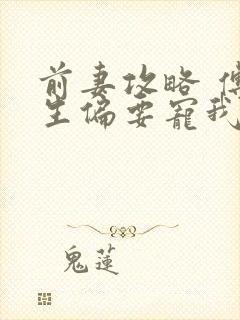 前妻攻略
生偏要寵我
鬼蓮